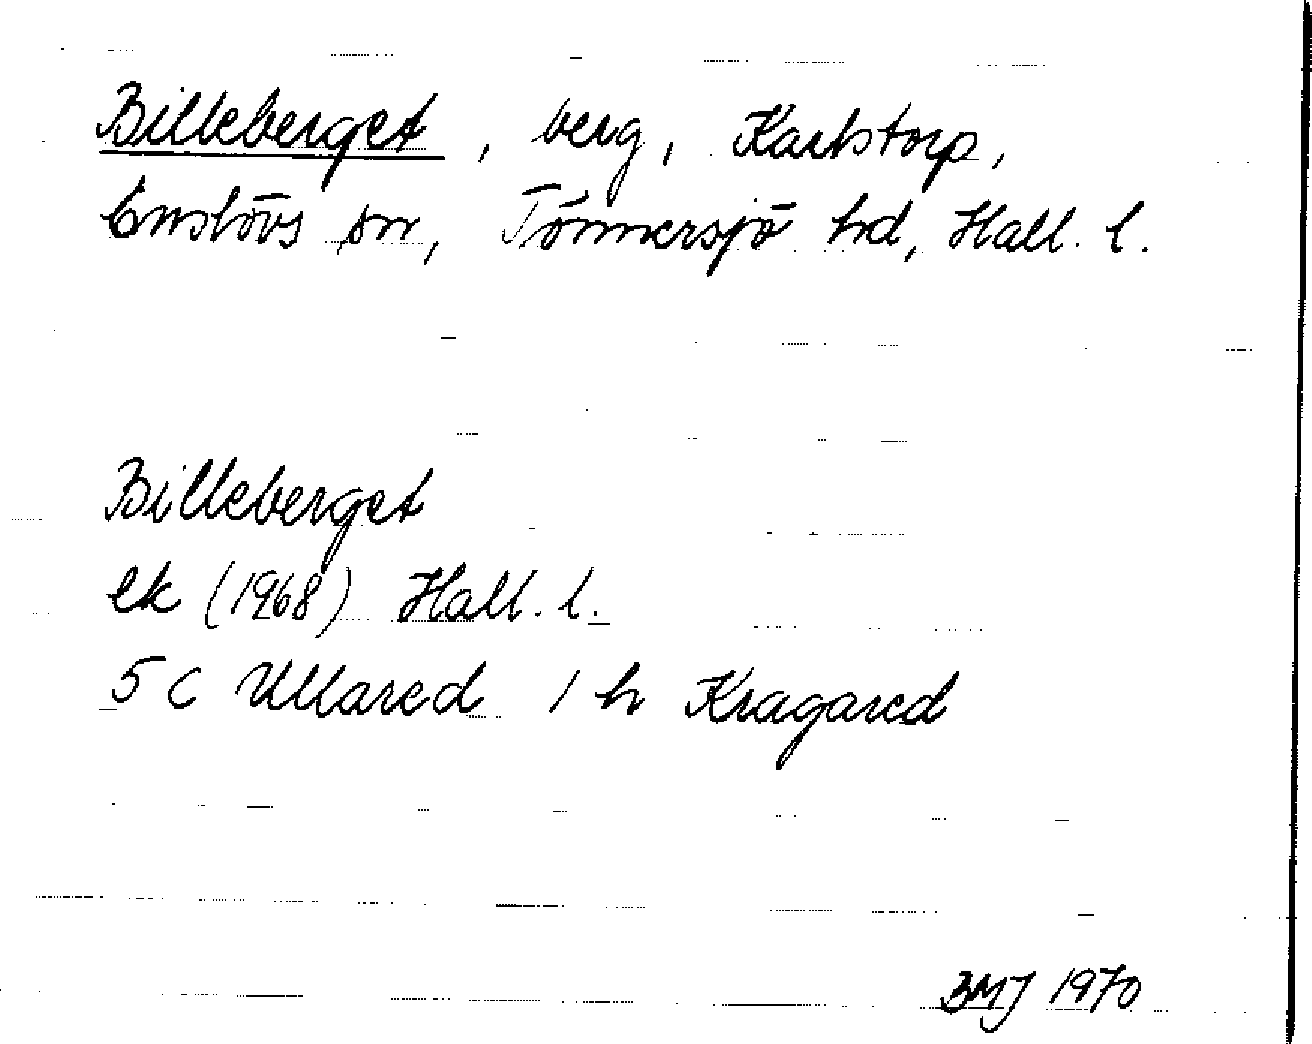 Billeberget, berg, Karlstorp,
Enslövs sn, Tönnersjö hd, Hall. l.
Billeberget
ek (1968) Hall. l.
5 C Ullared 1 h Kragared
BMJ 1970